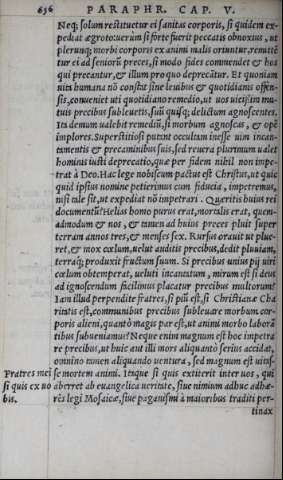 656 PARAPHR. CAP. V.
Neq; solum restituetur ei sanitas corporis, si quidem ex-
pediat ægroto: uerùm si forte fuerit peccatis obnoxius, ut
plerunq; morbi corporis ex animi malis oriuntur, remittẽ
tur ei ad seniorũ preces, si modo fides commendet & hos
qui precantur, & illum pro quo deprecãtur. Et quoniam
uita humana nõ constat sine leuibus & quotidianis offen-
sis, conueniet uti quotidiano remedio, ut uos uicissim mu-
tuis precibus subleuetis, suũ quisq; delictum agnoscentes.
Ita demum ualebit remediũ, si morbum agnoscas, & opẽ
implores. Superstitiosi putãt occultam inesse uim incan-
tamentis & precaminibus suis, sed reuera plurimum ualet
hominis iusti deprecatio, quæ per fidem nihil non impe-
trat à Deo. Hac lege nobiscum pactus est Christus, ut quic
quid ipsius nomine petierimus cum fiducia, impetremus,
nisi tale sit, ut expediat nõ impetrari. Quæritis huius rei
documentũ? Helias homo purus erat, mortalis erat, quem-
admodum & nos, & tamen ad huius preces pluit super
terram annos tres, & menses sex. Rursus orauit ut plue-
ret, & mox cœlum, uelut auditis precibus, dedit pluuiam,
terraq; produxit fructum suum. Si precibus unius pij uiri
cœlum obtemperat, ueluti incantatum, mirum est si deus
ad ignoscendum facilimus placatur precibus multorum?
Iam illud perpendite fratres, si piũ est, si Christianæ Cha
ritatis est, communibus precibus subleuare morbum cor-
poris alieni, quantò magis par est, ut animi morbo laborã
tibus subueniamus? Neque enim magnum est hoc impetra
re precibus, ut huic aut illi mors aliquantò serius accidat,
omnino tamen aliquando uentura, sed magnum est uitas-
Fratres mei se mortem animi. Itaque si quis extiterit inter uos, qui
si quis ex uo aberret ab euangelica ueritate, siue nimium adhuc adhæ-
bis. rẽs legi Mosaicæ, siue paganismi à maioribus traditi per-
tinax